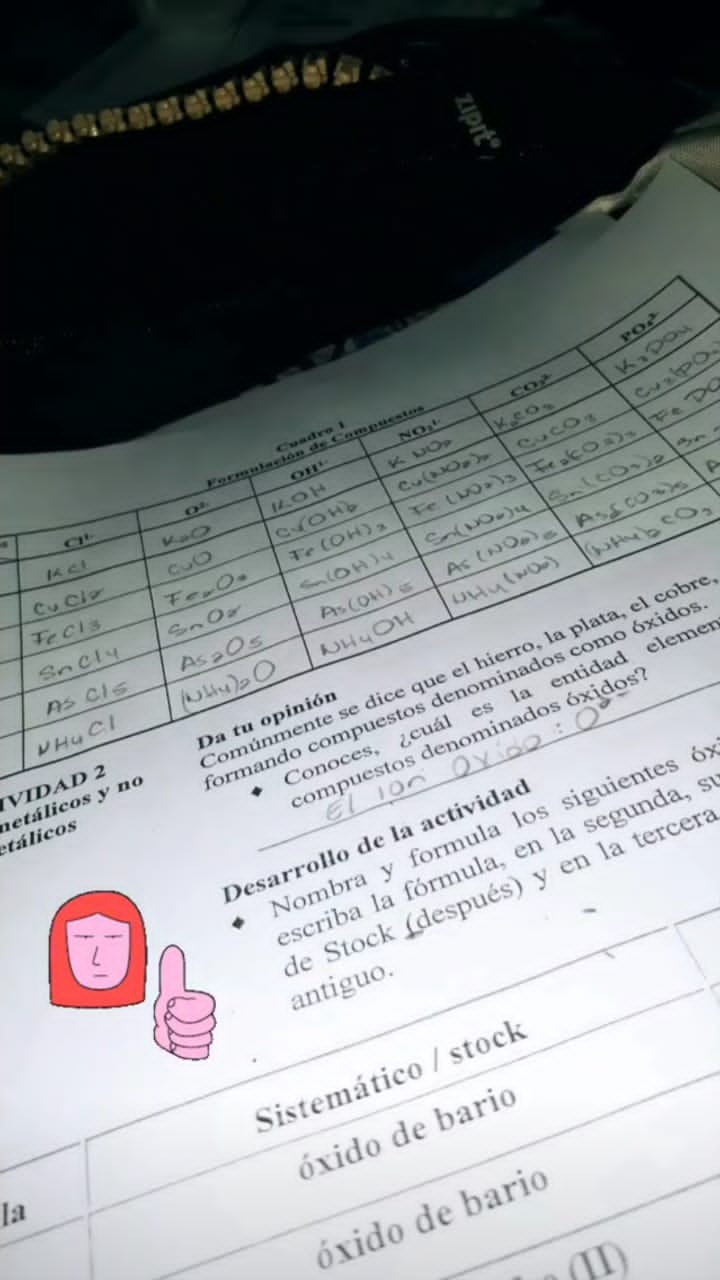 ZIPIT®
Cuadro 1
Formulación de Compuestos
Cl¹⁻ O²⁻ OH¹⁻ NO₂¹⁻ CO₃²⁻ PO₄³⁻
KCl K₂O KOH K NO₂ K₂CO₃ K₃PO₄
CuCl₂ CuO Cu(OH)₂ Cu(NO₂)₂ CuCO₃
FeCl₃ Fe₂O₃ Fe(OH)₃ Fe(NO₂)₃ Fe₂(CO₃)₃ Fe PO
SnCl₄ SnO₂ Sn(OH)₄ Sn(NO₂)₄ Sn(CO₃)₂ Sn
AsCl₅ As₂O₅ As(OH)₅ As(NO₂)₅
NH₄Cl (NH₄)₂O NH₄OH NH₄(NO₂) (NH₄)₂CO₃
IVIDAD 2
metálicos y no
etálicos
Da tu opinión
Comúnmente se dice que el hierro, la plata, el cobre,
formando compuestos denominados como óxidos.
Conoces, ¿cuál es la entidad elemen
compuestos denominados óxidos?
El ion Oxido : O²⁻
Desarrollo de la actividad
Nombra y formula los siguientes óxi
escriba la fórmula, en la segunda, su
de Stock (después) y en la tercera
antiguo.
Sistemático / stock
la
óxido de bario
óxido de bario
(II)